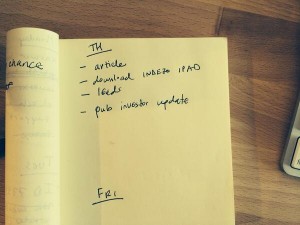 TH
- article
- download INDEZO IPAD
- leeds
- pub investor update
FRI